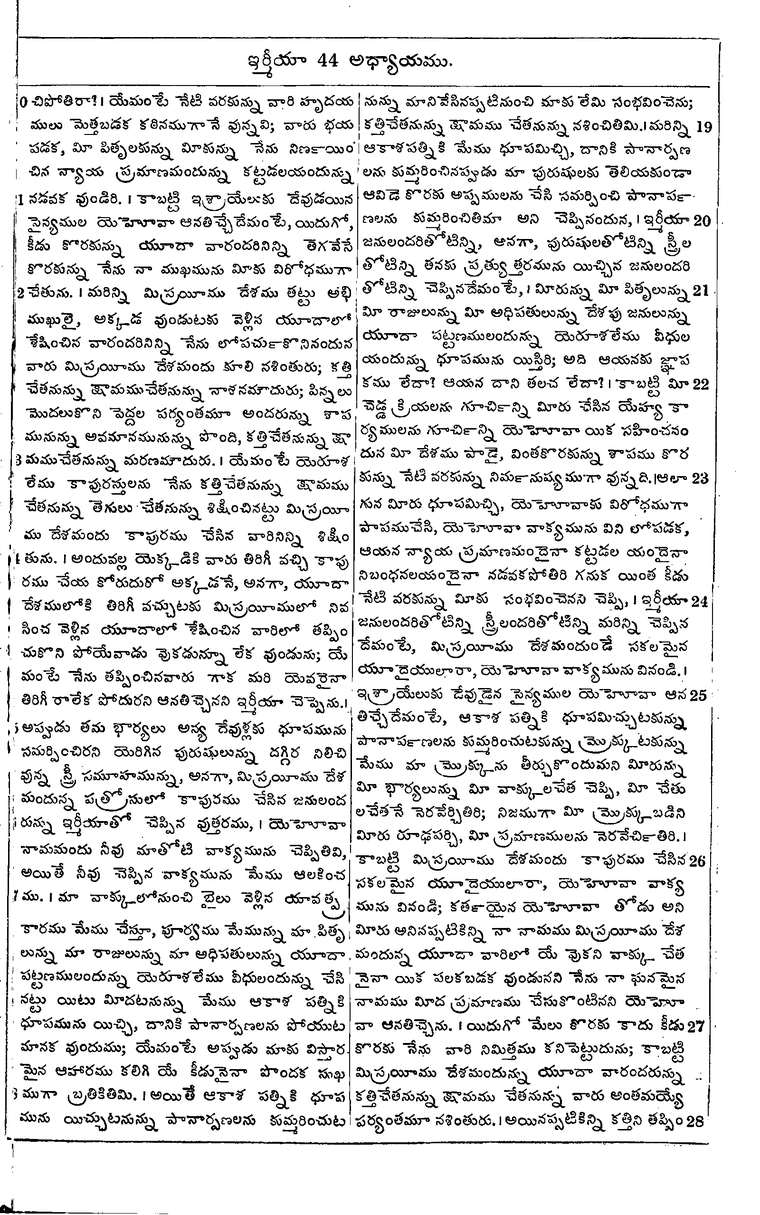 ఇర్మీయా 44 అధ్యాయము.
0 చిపోతిరా?। యేమంటే నేటి వరకున్ను వారి హృదయ
ములు మెత్తబడక కఠినముగానే వున్నవి; వారు భయ
పడక, మీ పితృలకున్ను మీకున్ను నేను నిణ౯యిం
చిన న్యాయ ప్రమాణమందున్ను కట్టడలయందున్ను
1 నడవక వుండిరి.। కాబట్టి ఇశ్రాయేలుకు దేవుడయిన
సైన్యముల యెహోవా ఆనతిచ్చేదేమంటే, యిదుగో,
కీడు కొరకున్ను యూదా వారందరినిన్ని తెగవేసే
కొరకున్ను నేను నా ముఖమును మీకు విరోధముగా
2 చేతును.। మరిన్ని మిస్రయీము దేశము తట్టు అభి
ముఖులై, అక్కడ వుండుటకు వెళ్లిన యూదాలో
శేషించిన వారందరినిన్ని నేను లోపచుకొనినందున
వారు మిస్రయీము దేశమందు కూలి నశింతురు; కత్తి
చేతనున్ను క్షామముచేతనున్ను నాశనమౌదురు; పిన్నలు
మొదలుకొని పెద్దల పర్యంతమూ అందరున్ను శాప
మునున్ను అవమానమునున్ను పొంది, కత్తిచేతనున్ను క్షా
3 మముచేతనున్ను మరణమౌదురు.। యేమంటే యెరూశ
లేము కాపురస్తులను నేను కత్తిచేతనున్ను క్షామము
చేతనున్ను తెగులు చేతనున్ను శిక్షించినట్టు మిస్రయీ
ము దేశమందు కాపురము చేసిన వారినిన్ని శిక్షిం
4 తును.। అందువల్ల యెక్కడికి వారు తిరిగీ వచ్చి కాపు
రము చేయ కోరుదురో అక్కడనే, అనగా, యూదా
దేశములోకి తిరిగీ వచ్చుటకు మిస్రయీములో నివ
సించ వెళ్లిన యూదాలో శేషించిన వారిలో తప్పిం
చుకొని పోయేవాడు వొకడున్నూ లేక వుండును; యే
మంటే నేను తప్పించినవారు గాక మరి యెవరైనా
తిరిగీ రాలేక పోదురని ఆనతిచ్చెనని ఇర్మీయా చెప్పెను.।
5 అప్పుడు తమ భార్యలు అన్య దేవుళ్లకు ధూపమును
సమర్పించిరని యెరిగిన పురుషులున్ను దగ్గిర నిలిచి
వున్న స్త్రీ సమూహమున్ను, అనగా, మిస్రయీము దేశ
మందున్న పత్రోసులో కాపురము చేసిన జనులంద
6 రున్ను ఇర్మీయాతో చెప్పిన వుత్తరము,। యెహోవా
నామమందు నీవు మాతోటి వాక్యమును చెప్పితివి,
అయితే నీవు చెప్పిన వాక్యమును మేము ఆలకించ
7 ము.। మా వాక్కులోనుంచి బైలు వెళ్లిన యావత్ప్ర
కారము మేము చేస్తూ, పూర్వము మేమున్ను మా పితృ
లున్ను మా రాజులున్ను మా అధిపతులున్ను యూదా
పట్టణములందున్ను యెరూశలేము వీధులందున్ను చేసి
నట్టు యిటు మీదటనున్ను మేము ఆకాశ పత్నికి
ధూపమును యిచ్చి, దానికి పానార్పణలను పోయుట
మానక వుందుము; యేమంటే అప్పుడు మాకు విస్తార
మైన ఆహారము కలిగి యే కీడునైనా పొందక సుఖ
8 ముగా బ్రతికితిమి.। అయితే ఆకాశ పత్నికి ధూప
మును యిచ్చుటనున్ను పానార్పణలను కుమ్మరించుట
నున్ను మానివేసినప్పటినుంచి మాకు లేమి సంభవించెను;
కత్తిచేతనున్ను క్షామము చేతనున్ను నశించితిమి.। మరిన్ని 19
ఆకాశపత్నికి మేము ధూపమిచ్చి, దానికి పానార్పణ
లను కుమ్మరించినప్పుడు మా పురుషులకు తెలియకుండా
ఆవిడె కొరకు అప్పములను చేసి సమర్పించి పానాప౯
ణలను కుమ్మరించితిమా అని చెప్పినందున,। ఇర్మీయా 20
జనులందరితోటిన్ని, అనగా, పురుషులతోటిన్ని స్త్రీల
తోటిన్ని తనకు ప్రత్యుత్తరమును యిచ్చిన జనులందరి
తోటిన్ని చెప్పినదేమంటే,। మీరున్ను మీ పితృలున్ను 21
మీ రాజులున్ను మీ అధిపతులున్ను దేశపు జనులున్ను
యూదా పట్టణములందున్ను యెరూశలేము వీధుల
యందున్ను ధూపమును యిస్తిరి; అది ఆయనకు జ్ఞాప
కము లేదా? ఆయన దాని తలచ లేదా?। కాబట్టి మీ 22
చెడ్డ క్రియలను గూచి౯న్ని మీరు చేసిన యేహ్య కా
ర్యములను గూచి౯న్ని యెహోవా యిక సహించనం
దున మీ దేశము పాడై, వింతకొరకున్ను శాపము కొర
కున్ను నేటి వరకున్ను నిమ౯నుష్యముగా వున్నది.। ఆలా 23
గున మీరు ధూపమిచ్చి, యెహోవాకు విరోధముగా
పాపముచేసి, యెహోవా వాక్యమును విని లోపడక,
ఆయన న్యాయ ప్రమాణమందైనా కట్టడల యందైనా
నిబంధనలయందైనా నడవకపోతిరి గనుక యింత కీడు
నేటి వరకున్ను మీకు సంభవించెనని చెప్పి,। ఇర్మీయా 24
జనులందరితోటిన్ని స్త్రీలందరితోటిన్ని మరిన్ని చెప్పిన
దేమంటే, మిస్రయీము దేశమందుండే సకలమైన
యూదైయులారా, యెహోవా వాక్యమును వినండి.।
ఇశ్రాయేలుకు దేవుడైన సైన్యముల యెహోవా ఆన 25
తిచ్చేదేమంటే, ఆకాశ పత్నికి ధూపమిచ్చుటకున్ను
పానాప౯ణలను కుమ్మరించుటకున్ను మ్రొక్కుటకున్ను
మేము మా మ్రొక్కును తీర్చుకొందుమని మీరున్ను
మీ భార్యలున్ను మీ వాక్కులచేత చెప్పి, మీ చేతు
లచేతనే నెరవేర్చితిరి; నిజముగా మీ మ్రొక్కుబడిని
మీరు రూఢపర్చి, మీ ప్రమాణములను నెరవేచి౯తిరి.।
కాబట్టి మిస్రయీము దేశమందు కాపురము చేసిన 26
సకలమైన యూదైయులారా, యెహోవా వాక్య
మును వినండి; కత౯యైన యెహోవా తోడు అని
మీరు అనినప్పటికిన్ని నా నామము మిస్రయీము దేశ
మందున్న యూదా వారిలో యే వొకని వాక్కు చేత
నైనా యిక పలకబడక వుండునని నేను నా ఘనమైన
నామము మీద ప్రమాణము చేసుకొంటినని యెహో
వా ఆనతిచ్చెను.। యిదుగో మేలు కొరకు కాదు కీడు 27
కొరకు నేను వారి నిమిత్తము కనిపెట్టుదును; కాబట్టి
మిస్రయీము దేశమందున్న యూదా వారందరున్ను
కత్తిచేతనున్ను క్షామము చేతనున్ను వారు అంతమయ్యే
పర్యంతమూ నశింతురు.। అయినప్పటికిన్ని కత్తిని తప్పిం 28